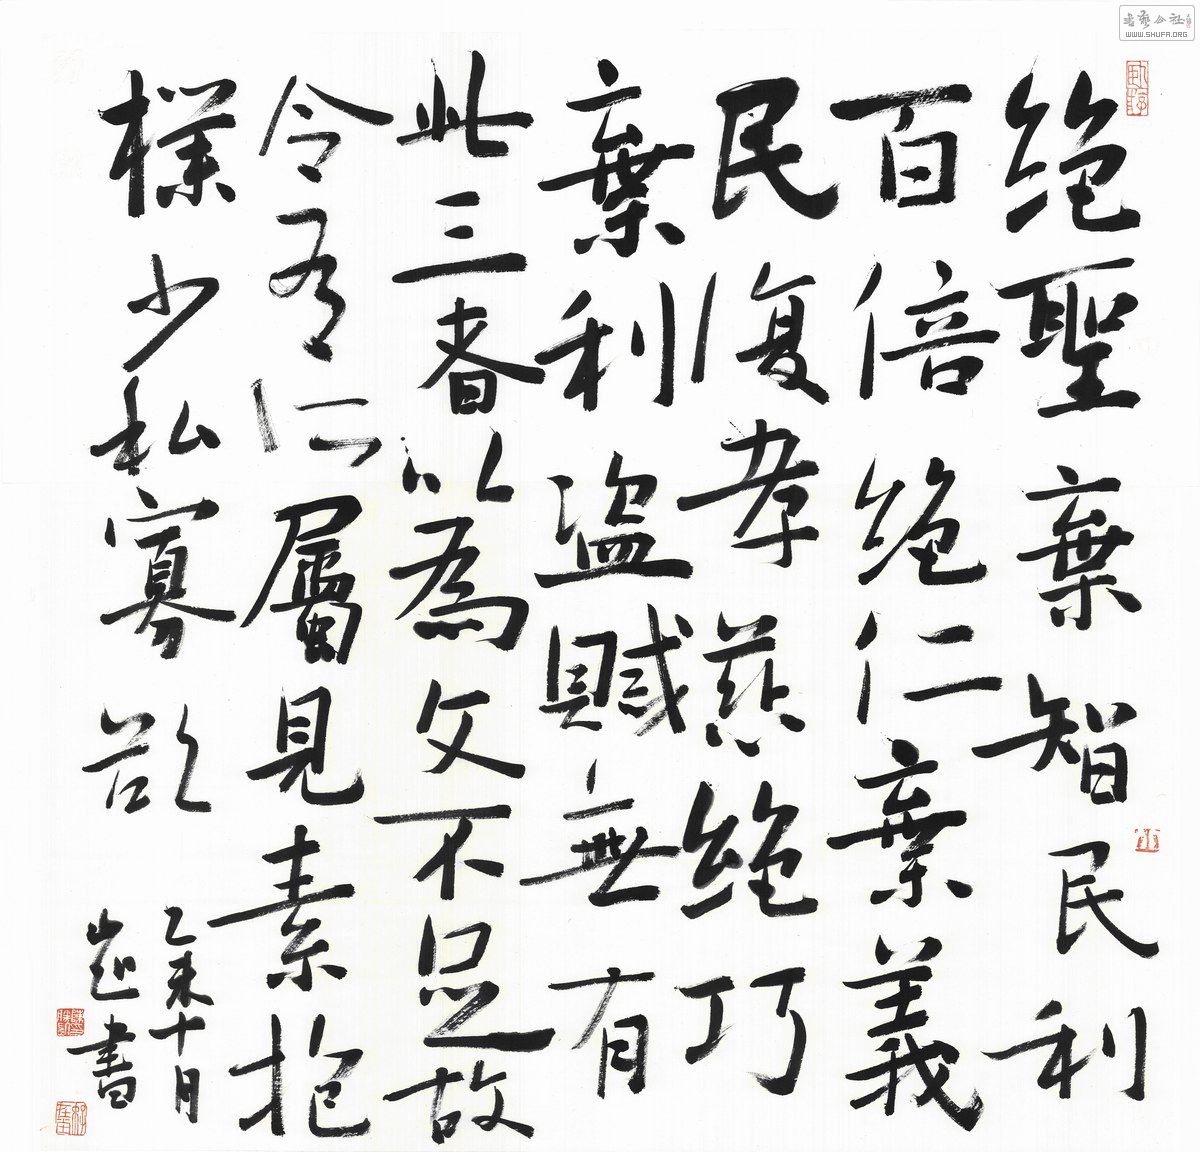 绝聖棄智民利
百倍绝仁棄義
民復孝慈绝巧
棄利盗賊無有
此三者以為文不足故
令有所屬見素抱
樸少私寡欲
乙未十月
書
书艺公社
WWW.SHUFA.ORG